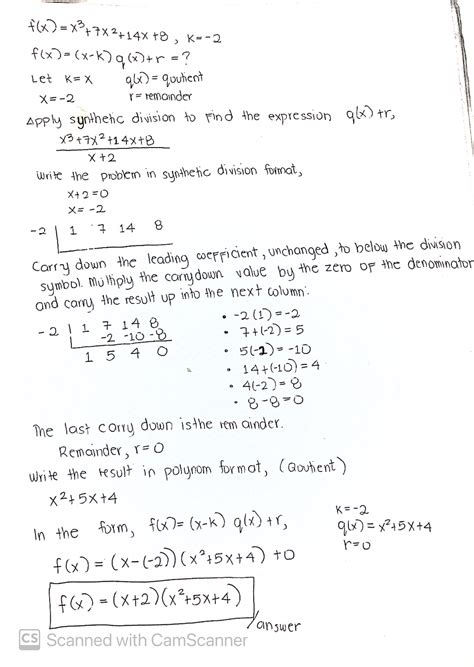 f(x) = x³+7x²+14x+8 , K=-2
f(x) = (x-k) q(x)+r = ?
Let K = X q(x) = qoutient
X = -2 r = remainder
Apply synthetic division to Find the expression q(x)+r,
x³+7x²+14x+8
x+2
write the problem in synthetic division format,
x+2=0
x= -2
-2 | 1 7 14 8
Carry down the leading coefficient, unchanged, to below the division
symbol. Multiply the carrydown value by the zero of the denominator
and carry the result up into the next column:
-2 | 1 7 14 8
-2 -10 -8
1 5 4 0
• -2(1)=-2
• 7+(-2)=5
• 5(-2)=-10
• 14+(-10)=4
• 4(-2)=8
• 8-8=0
The last carry down is the remainder.
Remainder, r=0
Write the result in polynom format, (Qoutient)
x²+5x+4
In the form, f(x)=(x-k) q(x)+r,
K=-2
q(x)=x²+5x+4
r=0
f(x) = (x-(-2))(x²+5x+4)+0
f(x) = (x+2)(x²+5x+4)
/answer
CS Scanned with CamScanner